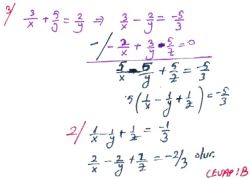 3/ 3/x + 5/y = 2/y ⇒ 3/x - 2/y = -5/3
-/ -2/x + 3/y - 5/z = 0
5/x - 5/y + 5/z = -5/3
5(1/x - 1/y + 1/z) = -5/3
2/ 1/x - 1/y + 1/z = 1/3
2/x - 2/y + 2/z = -2/3 olur.
CEVAP: B